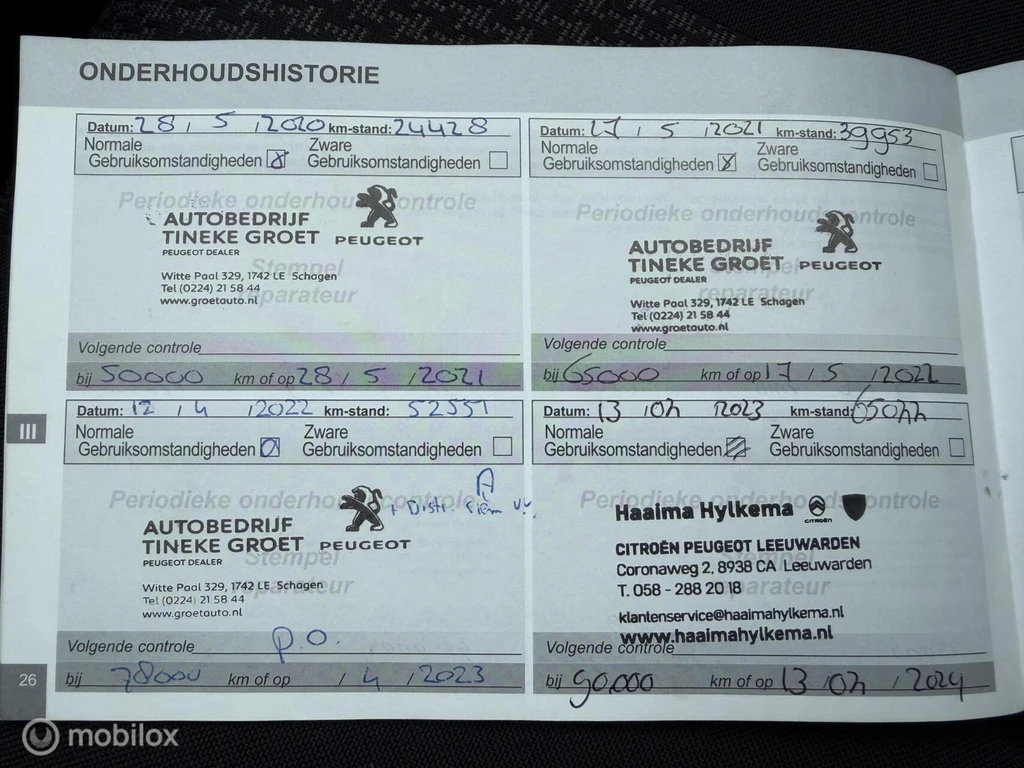 ONDERHOUDSHISTORIE
Datum: 28 / 5 / 2020 km-stand: 24428
Normale Zware
Gebruiksomstandigheden Gebruiksomstandigheden
Periodieke onderhoudscontrole
AUTOBEDRIJF
TINEKE GROET PEUGEOT
PEUGEOT DEALER
Stempel
Witte Paal 329, 1742 LE Schagen
Tel (0224) 21 58 44
reparateur
www.groetauto.nl
Volgende controle
bij 50000 km of op 28 / 5 / 2021
Datum: 17 / 5 / 2021 km-stand: 39953
Normale Zware
Gebruiksomstandigheden Gebruiksomstandigheden
Periodieke onderhoudscontrole
AUTOBEDRIJF
TINEKE GROET PEUGEOT
Stempel
PEUGEOT DEALER
reparateur
Witte Paal 329, 1742 LE Schagen
Tel (0224) 21 58 44
www.groetauto.nl
Volgende controle
bij 65000 km of op 17 / 5 / 2022
III
Datum: 12 / 4 / 2022 km-stand: 52551
Normale Zware
Gebruiksomstandigheden Gebruiksomstandigheden
A
Periodieke onderhoudscontrole
+ Distr. riem
AUTOBEDRIJF
TINEKE GROET PEUGEOT
PEUGEOT DEALER
Stempel
Witte Paal 329, 1742 LE Schagen
reparateur
Tel (0224) 21 58 44
www.groetauto.nl
Volgende controle P.O.
bij 78000 km of op / 4 / 2023
Datum: 13 / 04 / 2023 km-stand: 65044
Normale Zware
Gebruiksomstandigheden Gebruiksomstandigheden
Periodieke onderhoudscontrole
Haaima Hylkema CITROËN
CITROËN PEUGEOT LEEUWARDEN
Stempel
Coronaweg 2, 8938 CA Leeuwarden
T. 058 - 288 20 18
reparateur
klantenservice@haaimahylkema.nl
www.haaimahylkema.nl
Volgende controle
bij 90.000 km of op 13 / 04 / 2024
26
mobilox